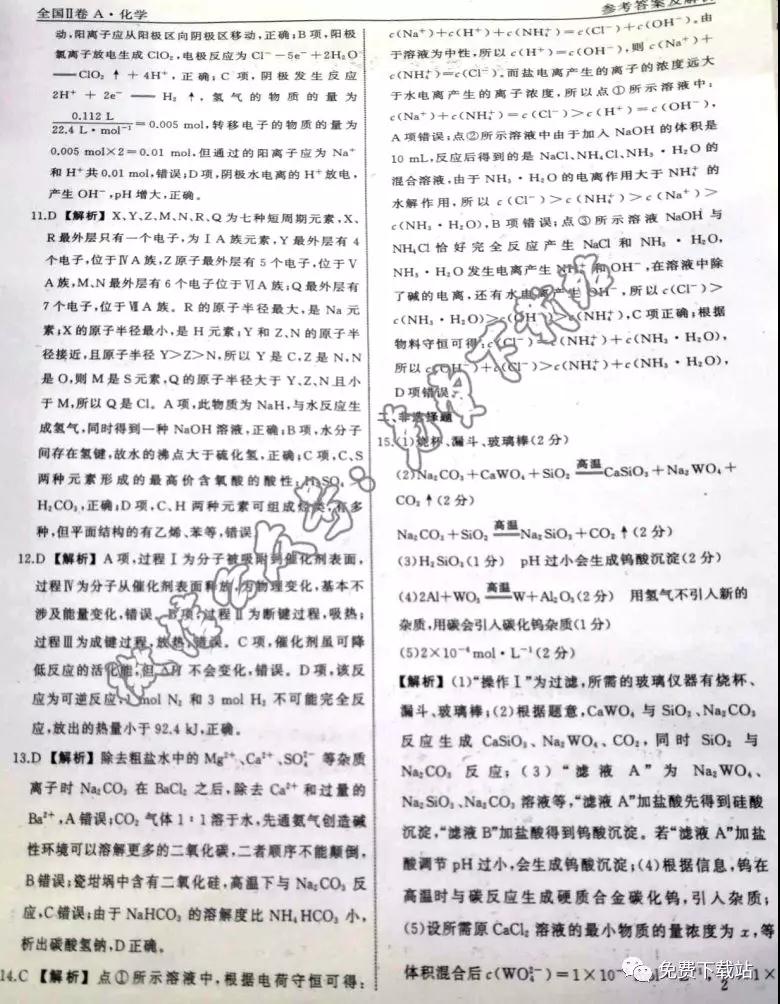 全国Ⅱ卷 A·化学
参考答案及解析
动,阳离子应从阳极区向阴极区移动,正确;B项,阳极
氯离子放电生成 ClO₂,电极反应为 Cl⁻−5e⁻+2H₂O
══ClO₂ ↑ + 4H⁺, 正确; C 项, 阴极发生反应
2H⁺ + 2e⁻ ══ H₂ ↑, 氢气的物质的量为
0.112 L / 22.4 L·mol⁻¹ =0.005 mol,转移电子的物质的量为
0.005 mol×2=0.01 mol,但通过的阳离子应为 Na⁺
和 H⁺共 0.01 mol,错误;D项,阴极水电离的 H⁺放电,
产生 OH⁻,pH 增大,正确。
11.D 【解析】X、Y、Z、M、N、R、Q 为七种短周期元素,X、
R 最外层只有一个电子,为ⅠA 族元素,Y 最外层有 4
个电子,位于ⅣA族,Z原子最外层有 5 个电子,位于Ⅴ
A族,M、N最外层有 6 个电子位于ⅥA族;Q最外层有
7个电子,位于ⅦA族。R 的原子半径最大,是 Na 元
素;X的原子半径最小,是 H 元素;Y 和 Z、N 的原子半
径接近,且原子半径 Y>Z>N,所以 Y 是 C,Z 是 N,N
是 O,则 M 是 S元素,Q的原子半径大于 Y、Z、N 且小
于 M,所以 Q 是 Cl。A项,此物质为 NaH,与水反应生
成氢气,同时得到一种 NaOH 溶液,正确;B项,水分子
间存在氢键,故水的沸点大于硫化氢,正确;C 项,C、S
两种元素形成的最高价含氧酸的酸性:H₂SO₄>
H₂CO₃,正确;D 项,C、H 两种元素可组成烃类,有多
种,但平面结构的有乙烯、苯等,错误。
12.D 【解析】A 项,过程Ⅰ为分子被吸附到催化剂表面,
过程Ⅳ为分子从催化剂表面释放,为物理变化,基本不
涉及能量变化,错误。B项,过程Ⅱ为断键过程,吸热;
过程Ⅲ为成键过程,放热,错误。C 项,催化剂虽可降
低反应的活化能,但ΔH 不会变化,错误。D项,该反
应为可逆反应,1 mol N₂ 和 3 mol H₂ 不可能完全反
应,放出的热量小于 92.4 kJ,正确。
13.D 【解析】除去粗盐水中的 Mg²⁺、Ca²⁺、SO₄²⁻ 等杂质
离子时 Na₂CO₃ 在 BaCl₂ 之后,除去 Ca²⁺和过量的
Ba²⁺,A 错误;CO₂ 气体 1∶1 溶于水,先通氨气创造碱
性环境可以溶解更多的二氧化碳,二者顺序不能颠倒,
B错误;瓷坩埚中含有二氧化硅,高温下与 Na₂CO₃ 反
应,C错误;由于 NaHCO₃ 的溶解度比 NH₄HCO₃ 小,
析出碳酸氢钠,D正确。
14.C 【解析】点①所示溶液中,根据电荷守恒可得:
c(Na⁺)+c(H⁺)+c(NH₄⁺)=c(Cl⁻)+c(OH⁻)。由
于溶液为中性,所以 c(H⁺)=c(OH⁻),则 c(Na⁺)+
c(NH₄⁺)=c(Cl⁻)。而盐电离产生的离子的浓度远大
于水电离产生的离子浓度,所以点①所示溶液中:
c(Na⁺)+c(NH₄⁺)=c(Cl⁻)>c(H⁺)=c(OH⁻),
A项错误;点②所示溶液中由于加入 NaOH 的体积是
10 mL,反应后得到的是 NaCl、NH₄Cl、NH₃·H₂O 的
混合溶液,由于 NH₃·H₂O 的电离作用大于 NH₄⁺ 的
水解作用,所以 c(Cl⁻)>c(NH₄⁺)>c(Na⁺)>
c(NH₃·H₂O),B 项错误;点③所示溶液 NaOH 与
NH₄Cl 恰好完全反应产生 NaCl 和 NH₃·H₂O,
NH₃·H₂O 发生电离产生 NH₄⁺ 和 OH⁻,在溶液中除
了碱的电离,还有水电离产生 OH⁻,所以 c(Cl⁻)>
c(NH₃·H₂O)>c(OH⁻)>c(NH₄⁺),C 项正确;根据
物料守恒可得:c(Cl⁻)=c(NH₄⁺)+c(NH₃·H₂O),
所以 c(OH⁻)+c(Cl⁻)>c(NH₄⁺)+c(NH₃·H₂O),
D项错误。
二、非选择题
15.(1)烧杯、漏斗、玻璃棒(2 分)
(2)Na₂CO₃+CaWO₄+SiO₂ ══高温══ CaSiO₃+Na₂WO₄+
CO₂↑(2 分)
Na₂CO₃+SiO₂ ══高温══ Na₂SiO₃+CO₂↑(2 分)
(3)H₂SiO₃(1 分) pH 过小会生成钨酸沉淀(2 分)
(4)2Al+WO₃ ══高温══ W+Al₂O₃(2 分) 用氢气不引入新的
杂质,用碳会引入碳化钨杂质(1 分)
(5)2×10⁻⁴mol·L⁻¹(2 分)
【解析】(1)“操作Ⅰ”为过滤,所需的玻璃仪器有烧杯、
漏斗、玻璃棒;(2)根据题意,CaWO₄ 与 SiO₂、Na₂CO₃
反应生成 CaSiO₃、Na₂WO₄、CO₂,同时 SiO₂ 与
Na₂CO₃ 反应;(3)“滤液 A”为 Na₂WO₄、
Na₂SiO₃、Na₂CO₃ 溶液等,“滤液 A”加盐酸先得到硅酸
沉淀,“滤液 B”加盐酸得到钨酸沉淀。若“滤液 A”加盐
酸调节 pH 过小,会生成钨酸沉淀;(4)根据信息,钨在
高温时与碳反应生成硬质合金碳化钨,引入杂质;
(5)设所需原 CaCl₂ 溶液的最小物质的量浓度为 x,等
体积混合后 c(WO₄²⁻)=1×10⁻
1×
2
免费下载站